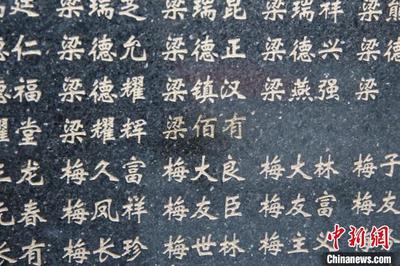 梁瑞芝 梁瑞昆 梁瑞祥 梁
仁 梁德允 梁德正 梁德兴 梁
福 梁德耀 梁镇汉 梁燕强 梁
堂 梁耀辉 梁佰有
龙 梅久富 梅大良 梅大林 梅子
春 梅凤祥 梅友臣 梅友富 梅友
长有 梅长珍 梅世林 梅主义 梅
中新网
www.chinanews.com